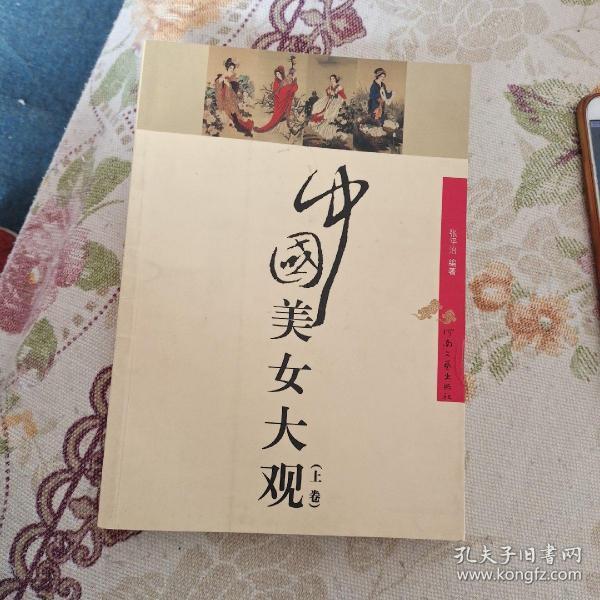 中國美女大观
(上卷)
张平治 编著
河南文艺出版社
孔夫子旧书网
www.kongfz.com